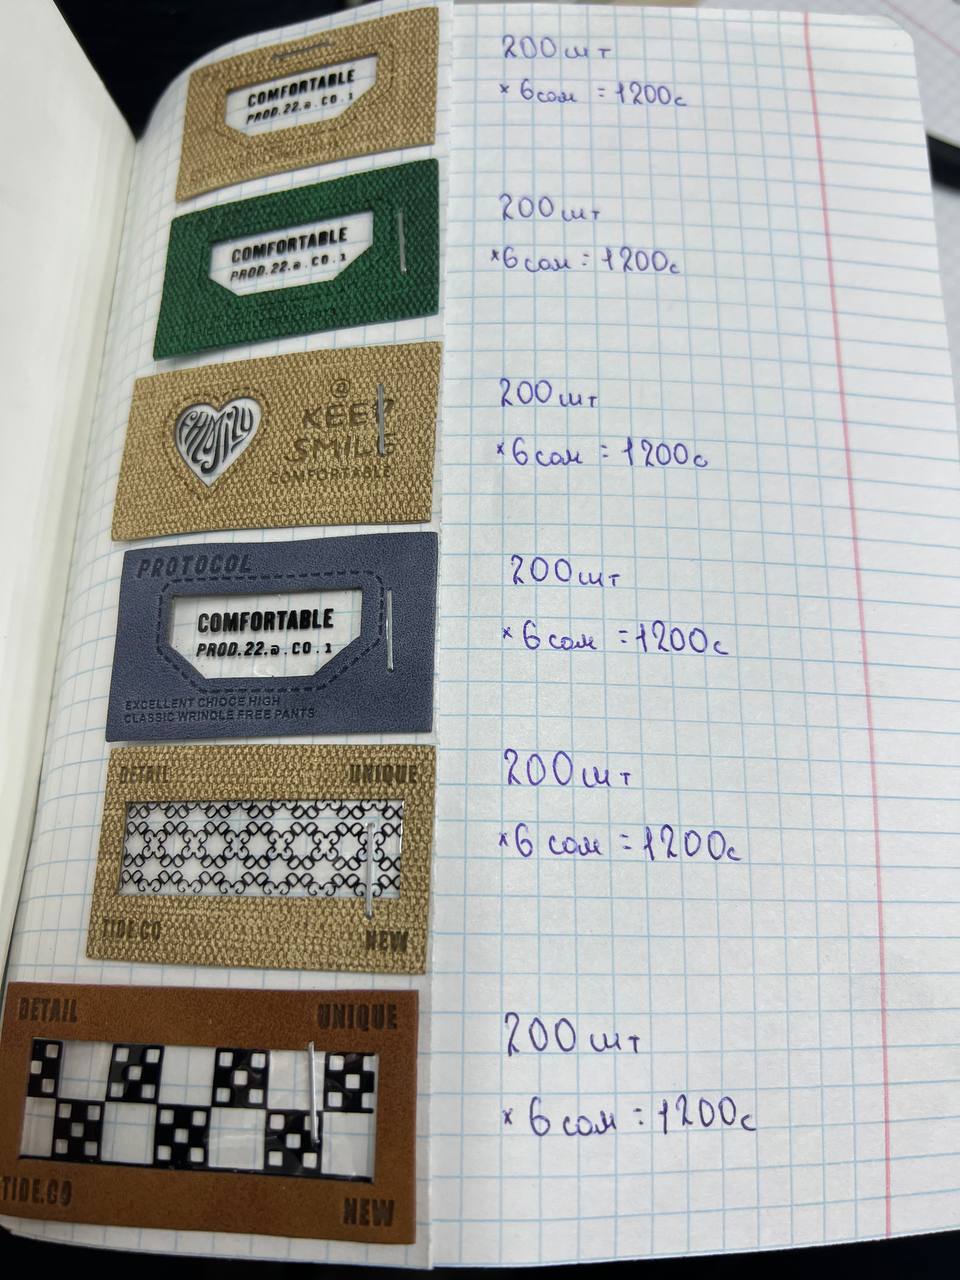 COMFORTABLE
PROD.22.@.CO.1
200шт
× 6сом = 1200с
COMFORTABLE
PROD.22.@.CO.1
200шт
×6сом = 1200с
FAMILY
@
KEEP
SMILE
COMFORTABLE
200шт
×6сом = 1200с
PROTOCOL
COMFORTABLE
PROD.22.@.CO.1
EXCELLENT CHIOCE HIGH
CLASSIC WRINDLE FREE PANTS
200шт
× 6сом = 1200с
DETAIL UNIQUE
TIDE.CO NEW
200шт
×6 сом = 1200с
DETAIL UNIQUE
TIDE.CO NEW
200шт
× 6 сом = 1200с